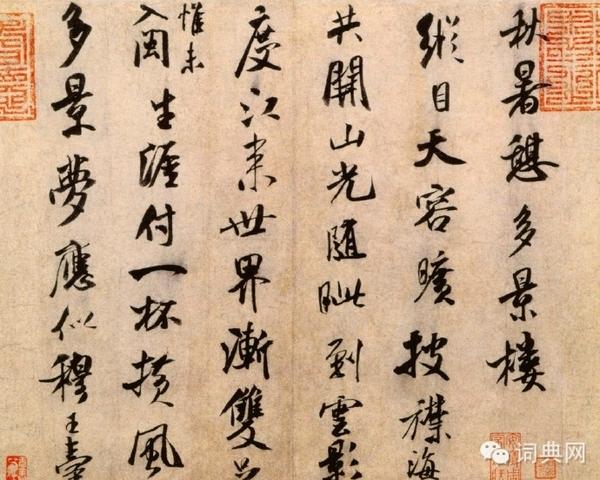 秋暑憩多景樓
縱目天容曠披襟海
共開山光隨眺到雲影
度江來世界漸雙
惟未
入閩生涯付一杯橫風
多景夢應似穆王臺
词典网